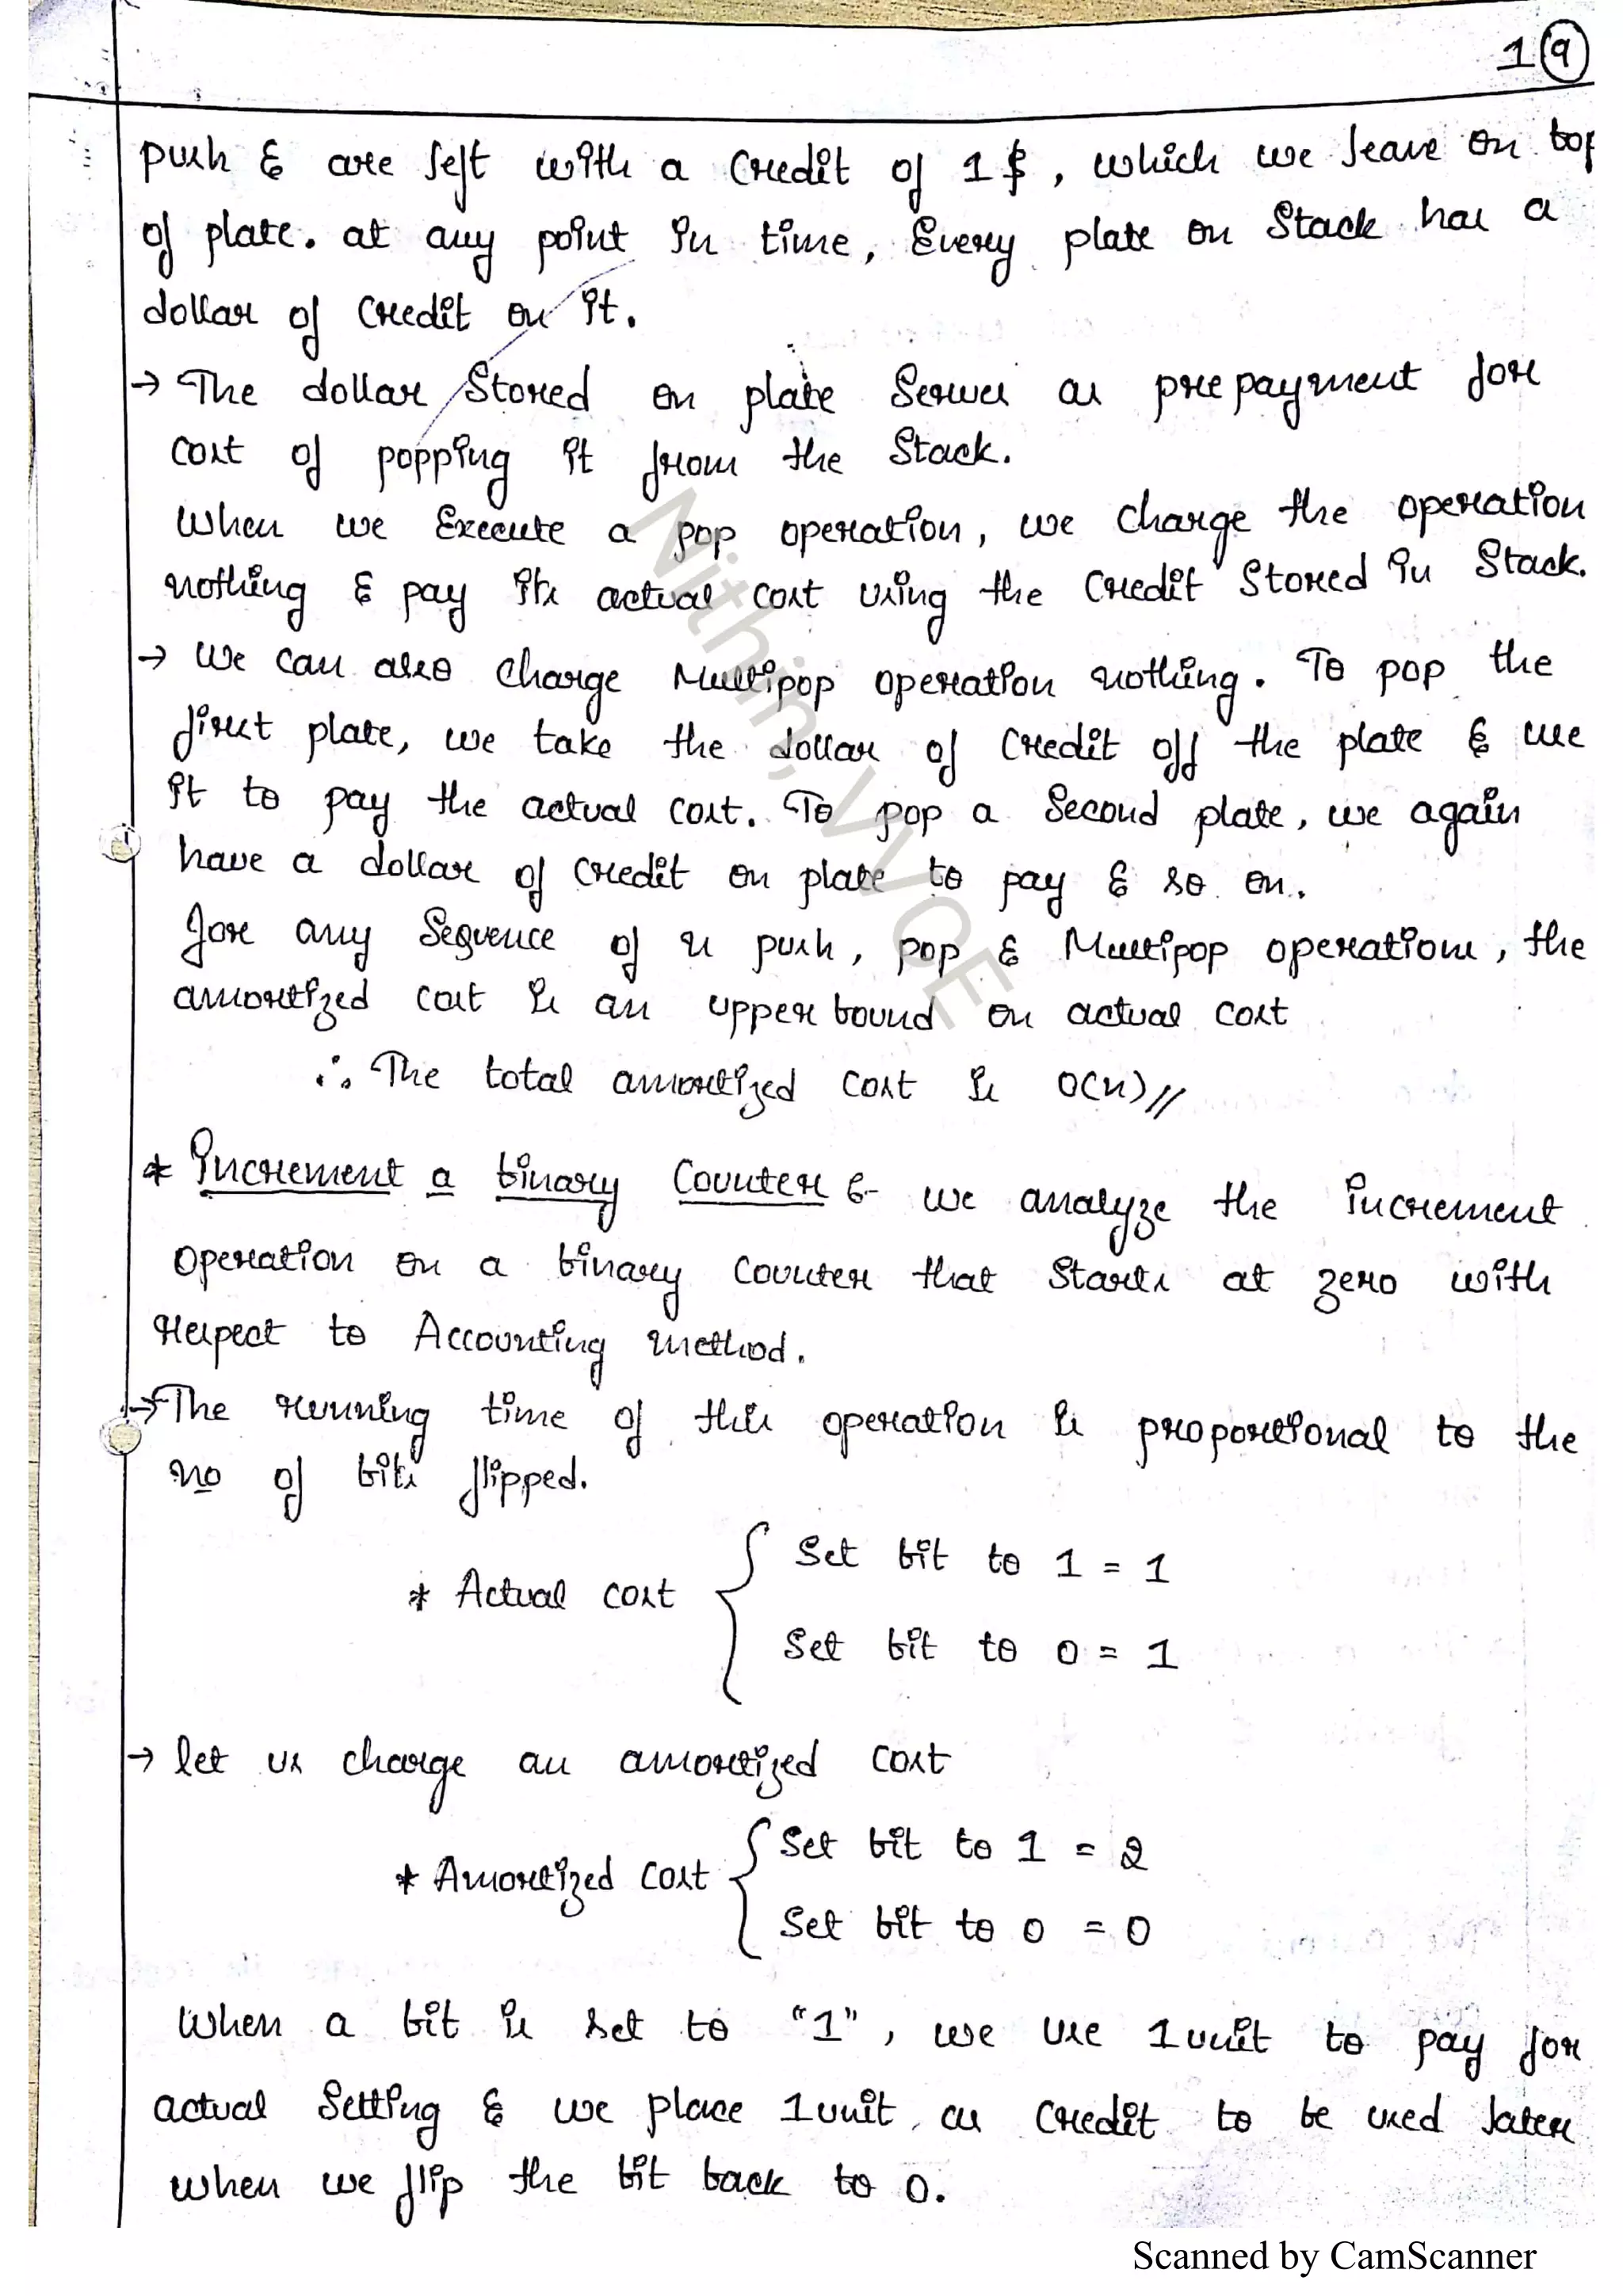 1 9
push & are left with a credit of 1 $, which we leave on top
of plate. at any point in time, Every plate on Stack has a
dollar of credit on it.
→ The dollar Stored on plate Serves as prepayment for
cost of popping it from the Stack.
When we Execute a pop operation, we charge the operation
nothing & pay its actual cost using the credit stored in Stack.
→ We can also charge Multipop operation nothing. To pop the
first plate, we take the dollar of credit off the plate & use
it to pay the actual cost. To pop a Second plate, we again
have a dollar of credit on plate to pay & so on.
for any Sequence of n push, pop & Multipop operations, the
amortized cost is an upper bound on actual cost
∴ The total amortized cost is O(n)//
* Increment a binary Counter :- we analyze the increment
operation on a binary counter that starts at zero with
respect to Accounting method.
→ The running time of this operation is proportional to the
no of bits flipped.
* Actual cost { Set bit to 1 = 1
Set bit to 0 = 1
→ let us charge an amortized cost
* Amortized cost { Set bit to 1 = 2
Set bit to 0 = 0
When a bit is set to "1", we use 1 unit to pay for
actual Setting & we place 1 unit as credit to be used later
when we flip the bit back to 0.
Nithin, VVCE
Scanned by CamScanner